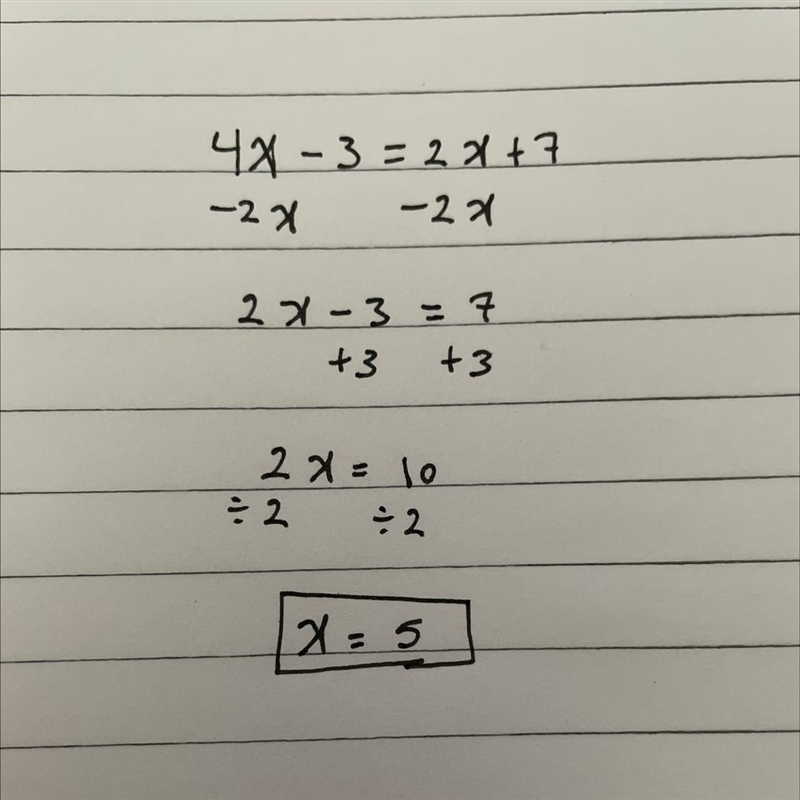 4x - 3 = 2x + 7
-2x -2x
2x - 3 = 7
+3 +3
2x = 10
÷2 ÷2
x = 5